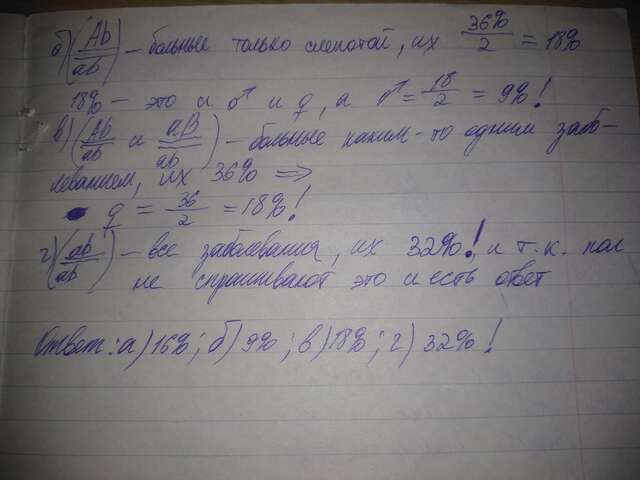 б) (Ab/ab) – больные только слепотой, их 36%/2 = 18%
18% – это и ♂ и ♀, а ♂ = 18/2 = 9%!
в) (Ab/ab и aB/ab) – больные каким-то одним забо-
леванием, их 36% ⇒
♀ = 36/2 = 18%!
г) (ab/ab) – все заболевания, их 32%! и т.к. пол
не спрашивают это и есть ответ
Ответ: а) 16%; б) 9%; в) 18%; г) 32%!